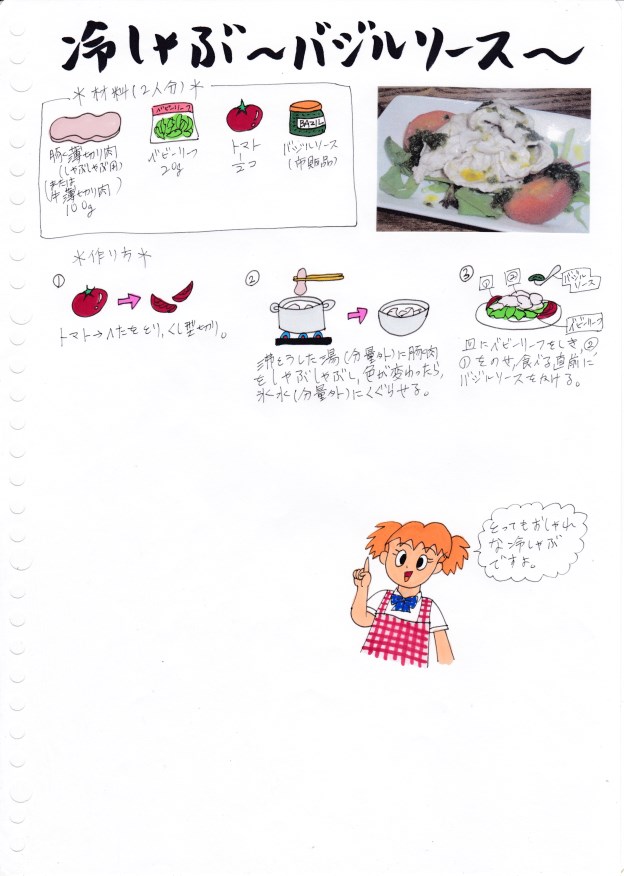 冷しゃぶ〜バジルソース〜
*材料(2人分)*
豚バラ薄切り肉
(しゃぶしゃぶ用)
(または
牛薄切り肉)
100g
ベビーリーフ
ベビーリーフ
20g
トマト
1コ
BAZIL
バジルソース
(市販品)
*作り方*
①
トマト→ヘタをとり、くし型切り。
②
沸とうした湯(分量外)に豚肉
をしゃぶしゃぶし、色が変わったら、
氷水(分量外)にくぐらせる。
③
① ② バジルソース
ベビーリーフ
皿にベビーリーフをしき、②
①をのせ、食べる直前に
バジルソースをかける。
とってもおしゃれ
な冷しゃぶ
ですよ。